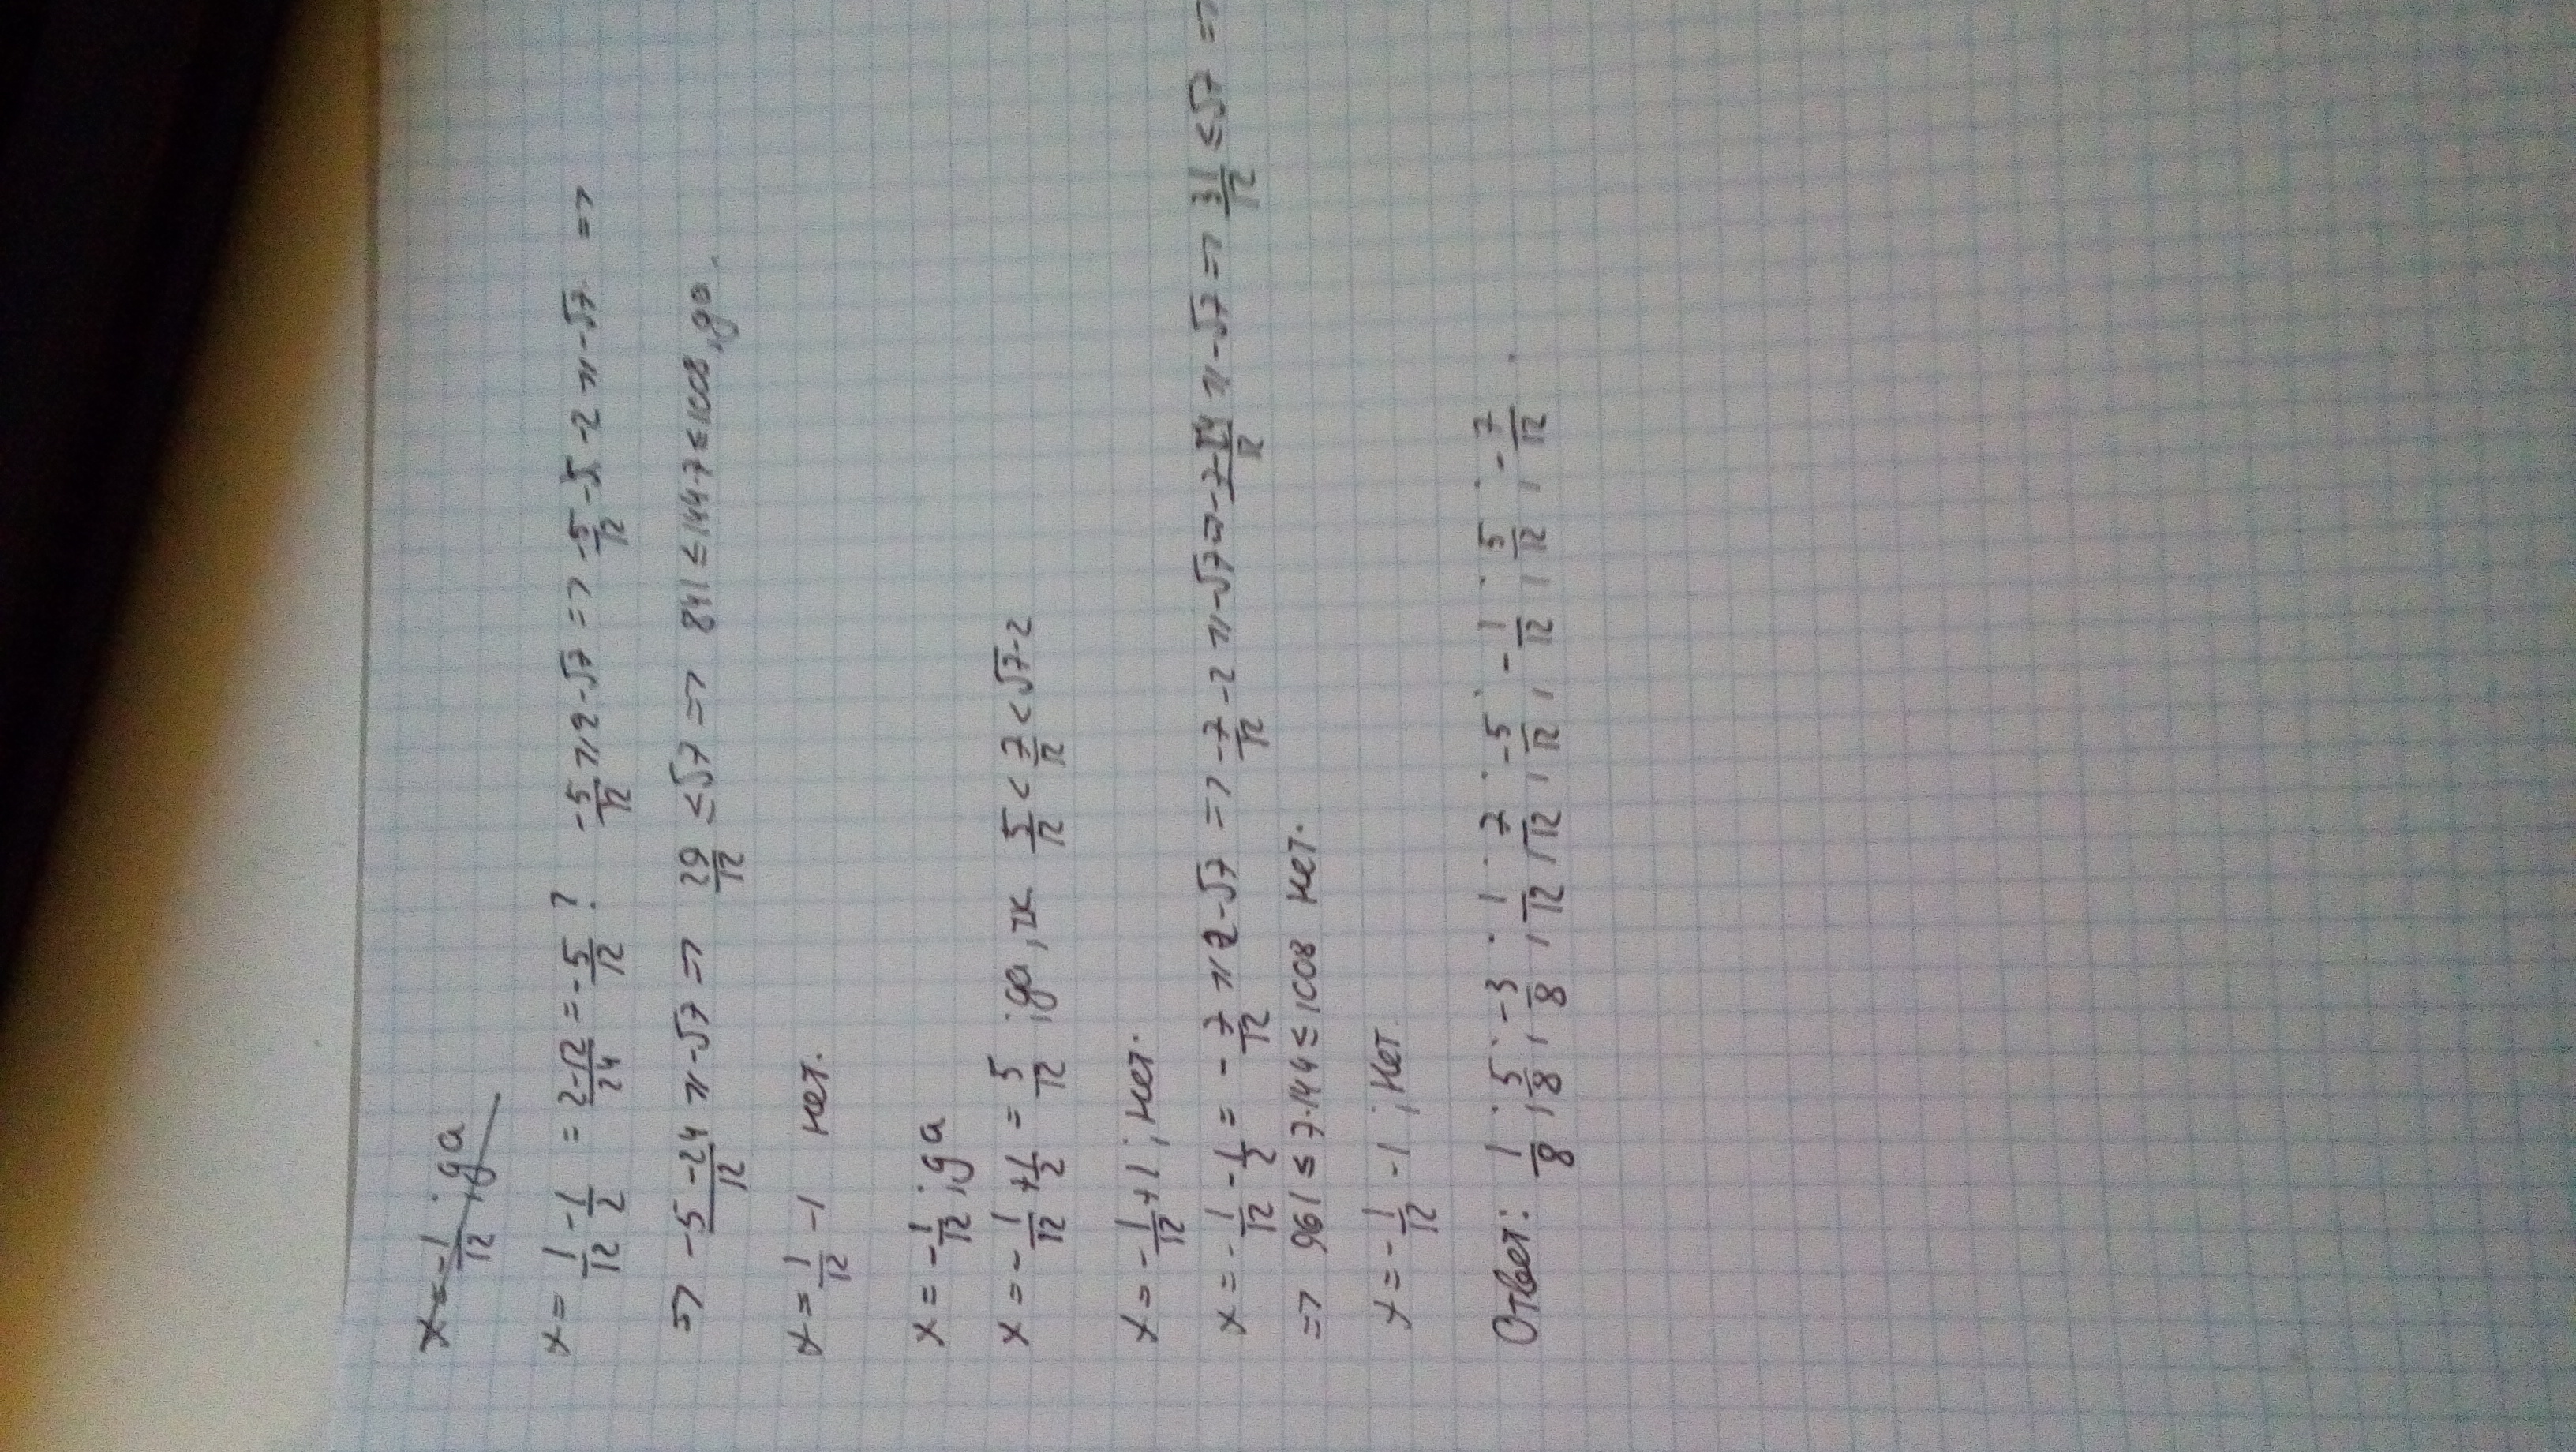 x = -1/12 ; да
x = 1/12 - 1/2 = 2-12/24 = -5/12 ? -5/12 и 2-√7 => -5/12 -2 и -√7 =>
=> -5-24/12 и -√7 => 29/12 ≤ √7 => 841 ≤ 144·7 ≤ 1008, да.
x = 1/12 - 1 нет.
x = -1/12 ; да
x = -1/12 + 1/2 = 5/12 ; да, тк 5/12 < 7/12 < √7-2
x = -1/12 + 1 ; нет.
x = -1/12 - 1/2 = -7/12 и 2-√7 => -7/12 -2 и -√7 => -7-24/12 и -√7 => 31/12 ≤ √7 =>
=> 961 ≤ 7·144 ≤ 1008 нет.
x = -1/12 - 1 ; нет.
Ответ: 1/8 ; 5/8 ; -3/8 ; 1/12 ; 7/12 ; -5/12 ; -1/12 ; 5/12 ; -7/12 .